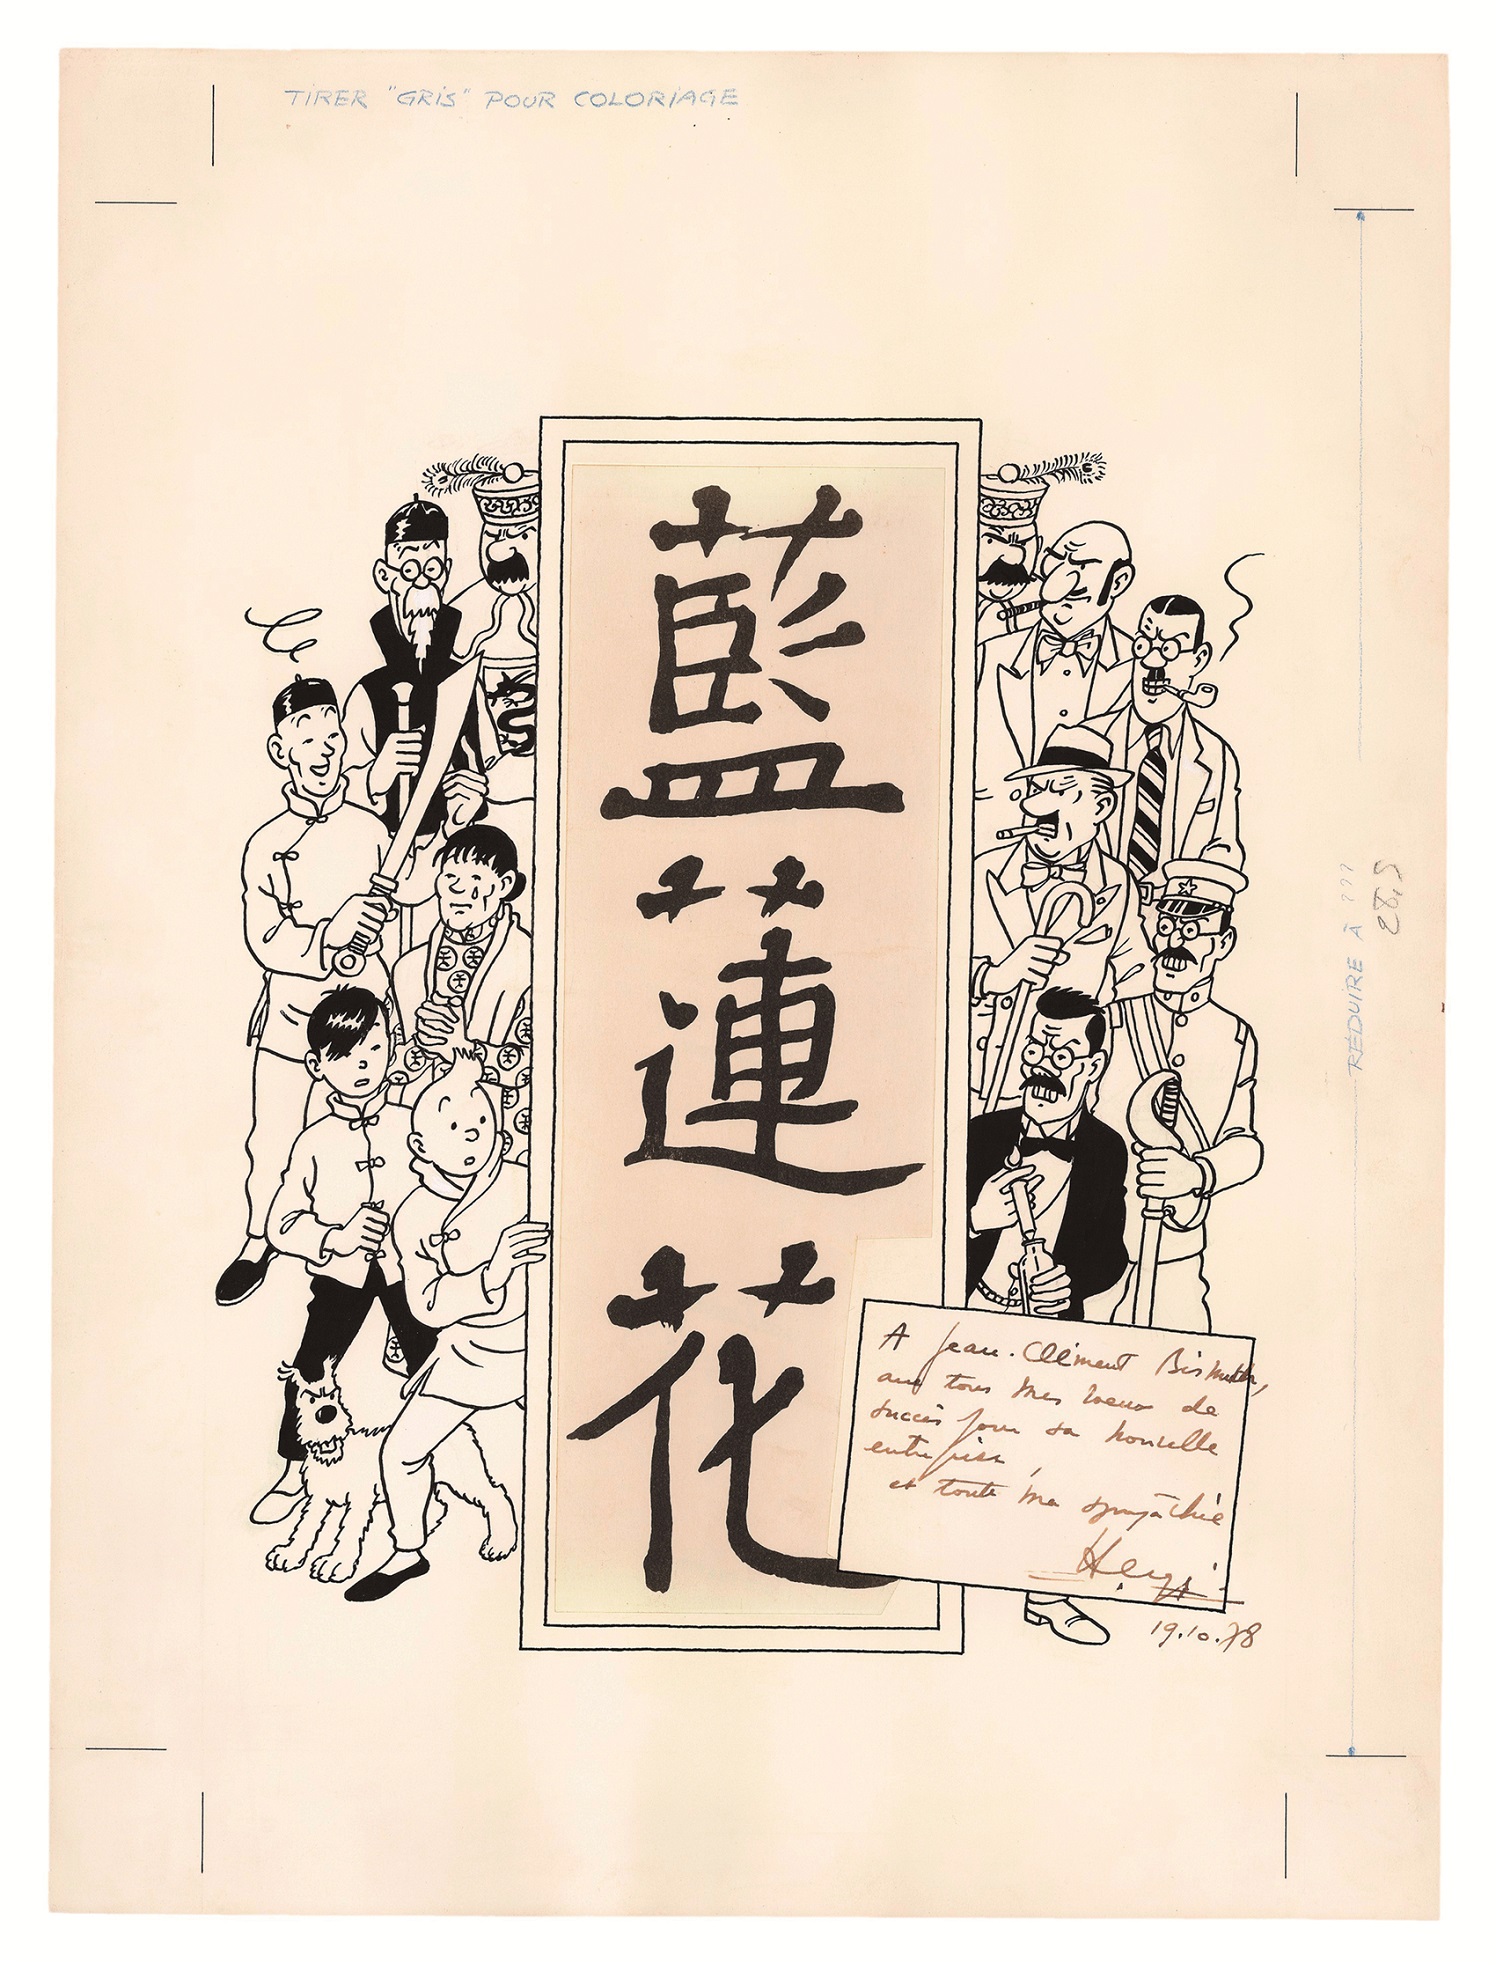 TIRER "GRIS" POUR COLORIAGE
藍
蓮
花
REDUIRE À ???
28,5
A Jean-Clément Bismuth,
avec tous mes vœux de
succès pour sa nouvelle
entreprise,
et toute ma sympathie
Hergé
19.10.78